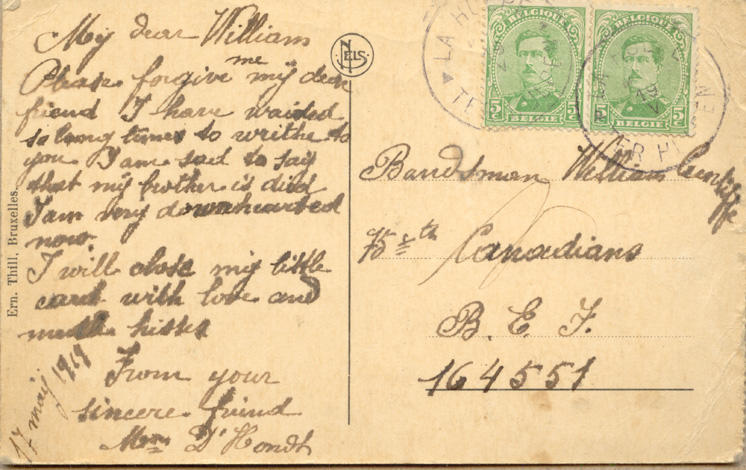 My dear William
Please forgive me my dear
friend I have waided
so long times to writhe to
you I am sad to say
that my brother is died
I am very downhearted
now.
I will close my little
card with love and
much kisses
From your
sincere friend
D'Hondt
17 maij 1919
Ern. Thill, Bruxelles.
NELS
BELGIQUE
5c 5c
BELGIE
BELGIQUE
5c
BELGIE
LA
LA
TER H
Bandsman William
75th Canadians
B. E. F.
164551